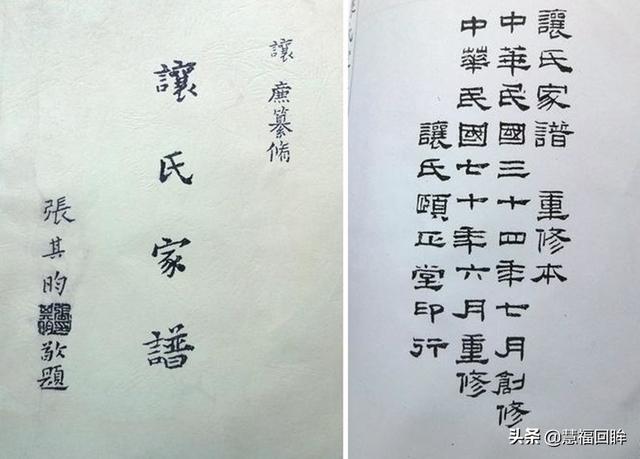 讓 廉纂脩
讓氏家譜
張其昀敬題
讓氏家譜 重修本
中華民國三十四年七月創修
中華民國七十年六月重修
讓氏頤正堂印行
头条 @慧福回眸